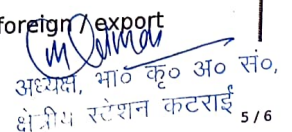 foreign / export
अध्यक्ष, भा० कृ० अ० सं०,
क्षेत्रीय स्टेशन कटराई
5 / 6